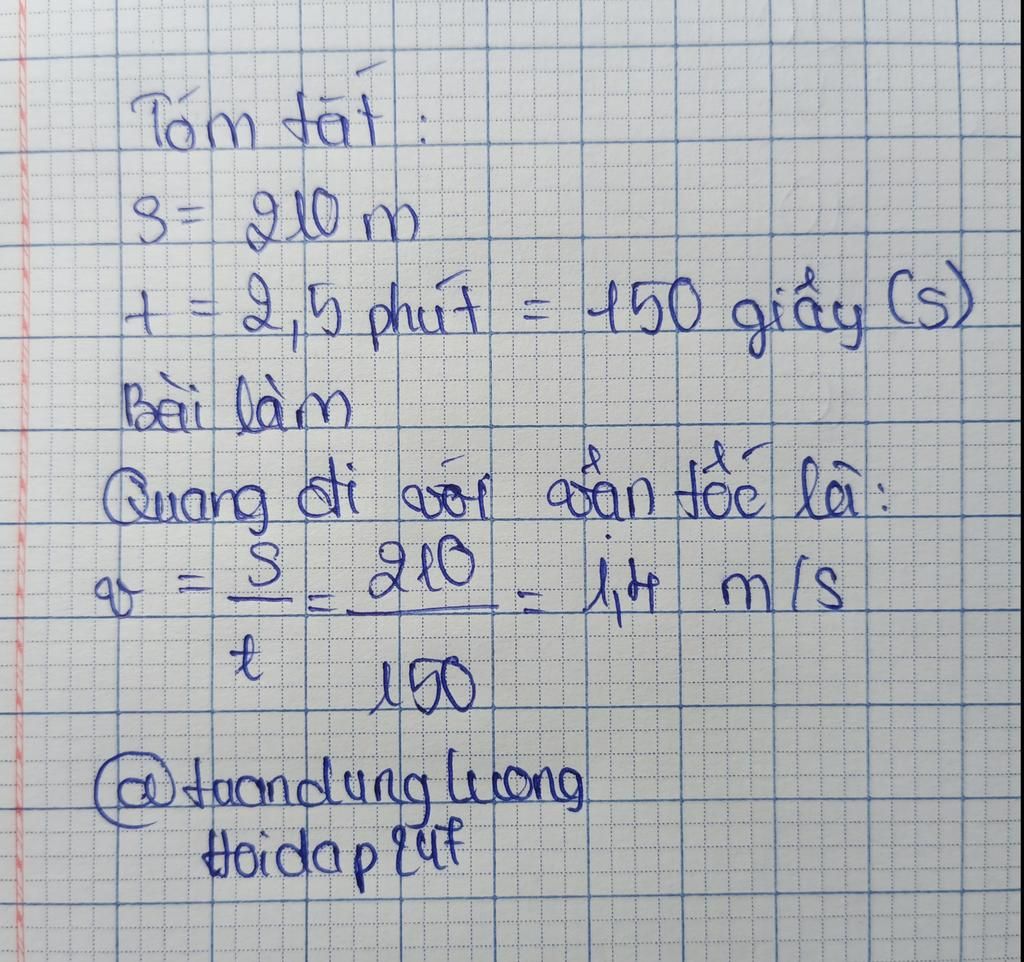 Tóm tắt :
S = 210 m
t = 2,5 phút = 150 giây (s)
Bài làm
Quang đi với vận tốc là :
v = S/t = 210/150 = 1,4 m/s
@toandungluong
Hoidap247